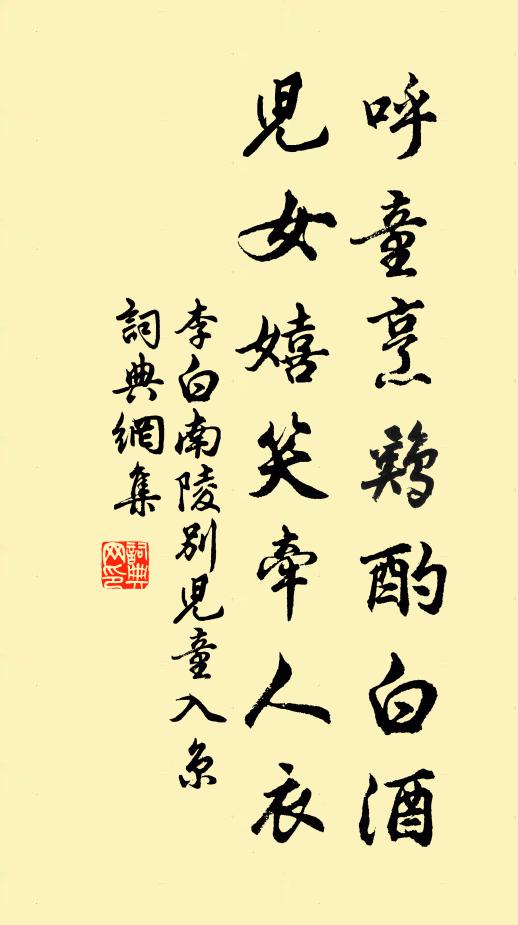 呼童烹鷄酌白酒
兒女嬉笑牽人衣
李白南陵别兒童入京
詞典網集
詞典
网印